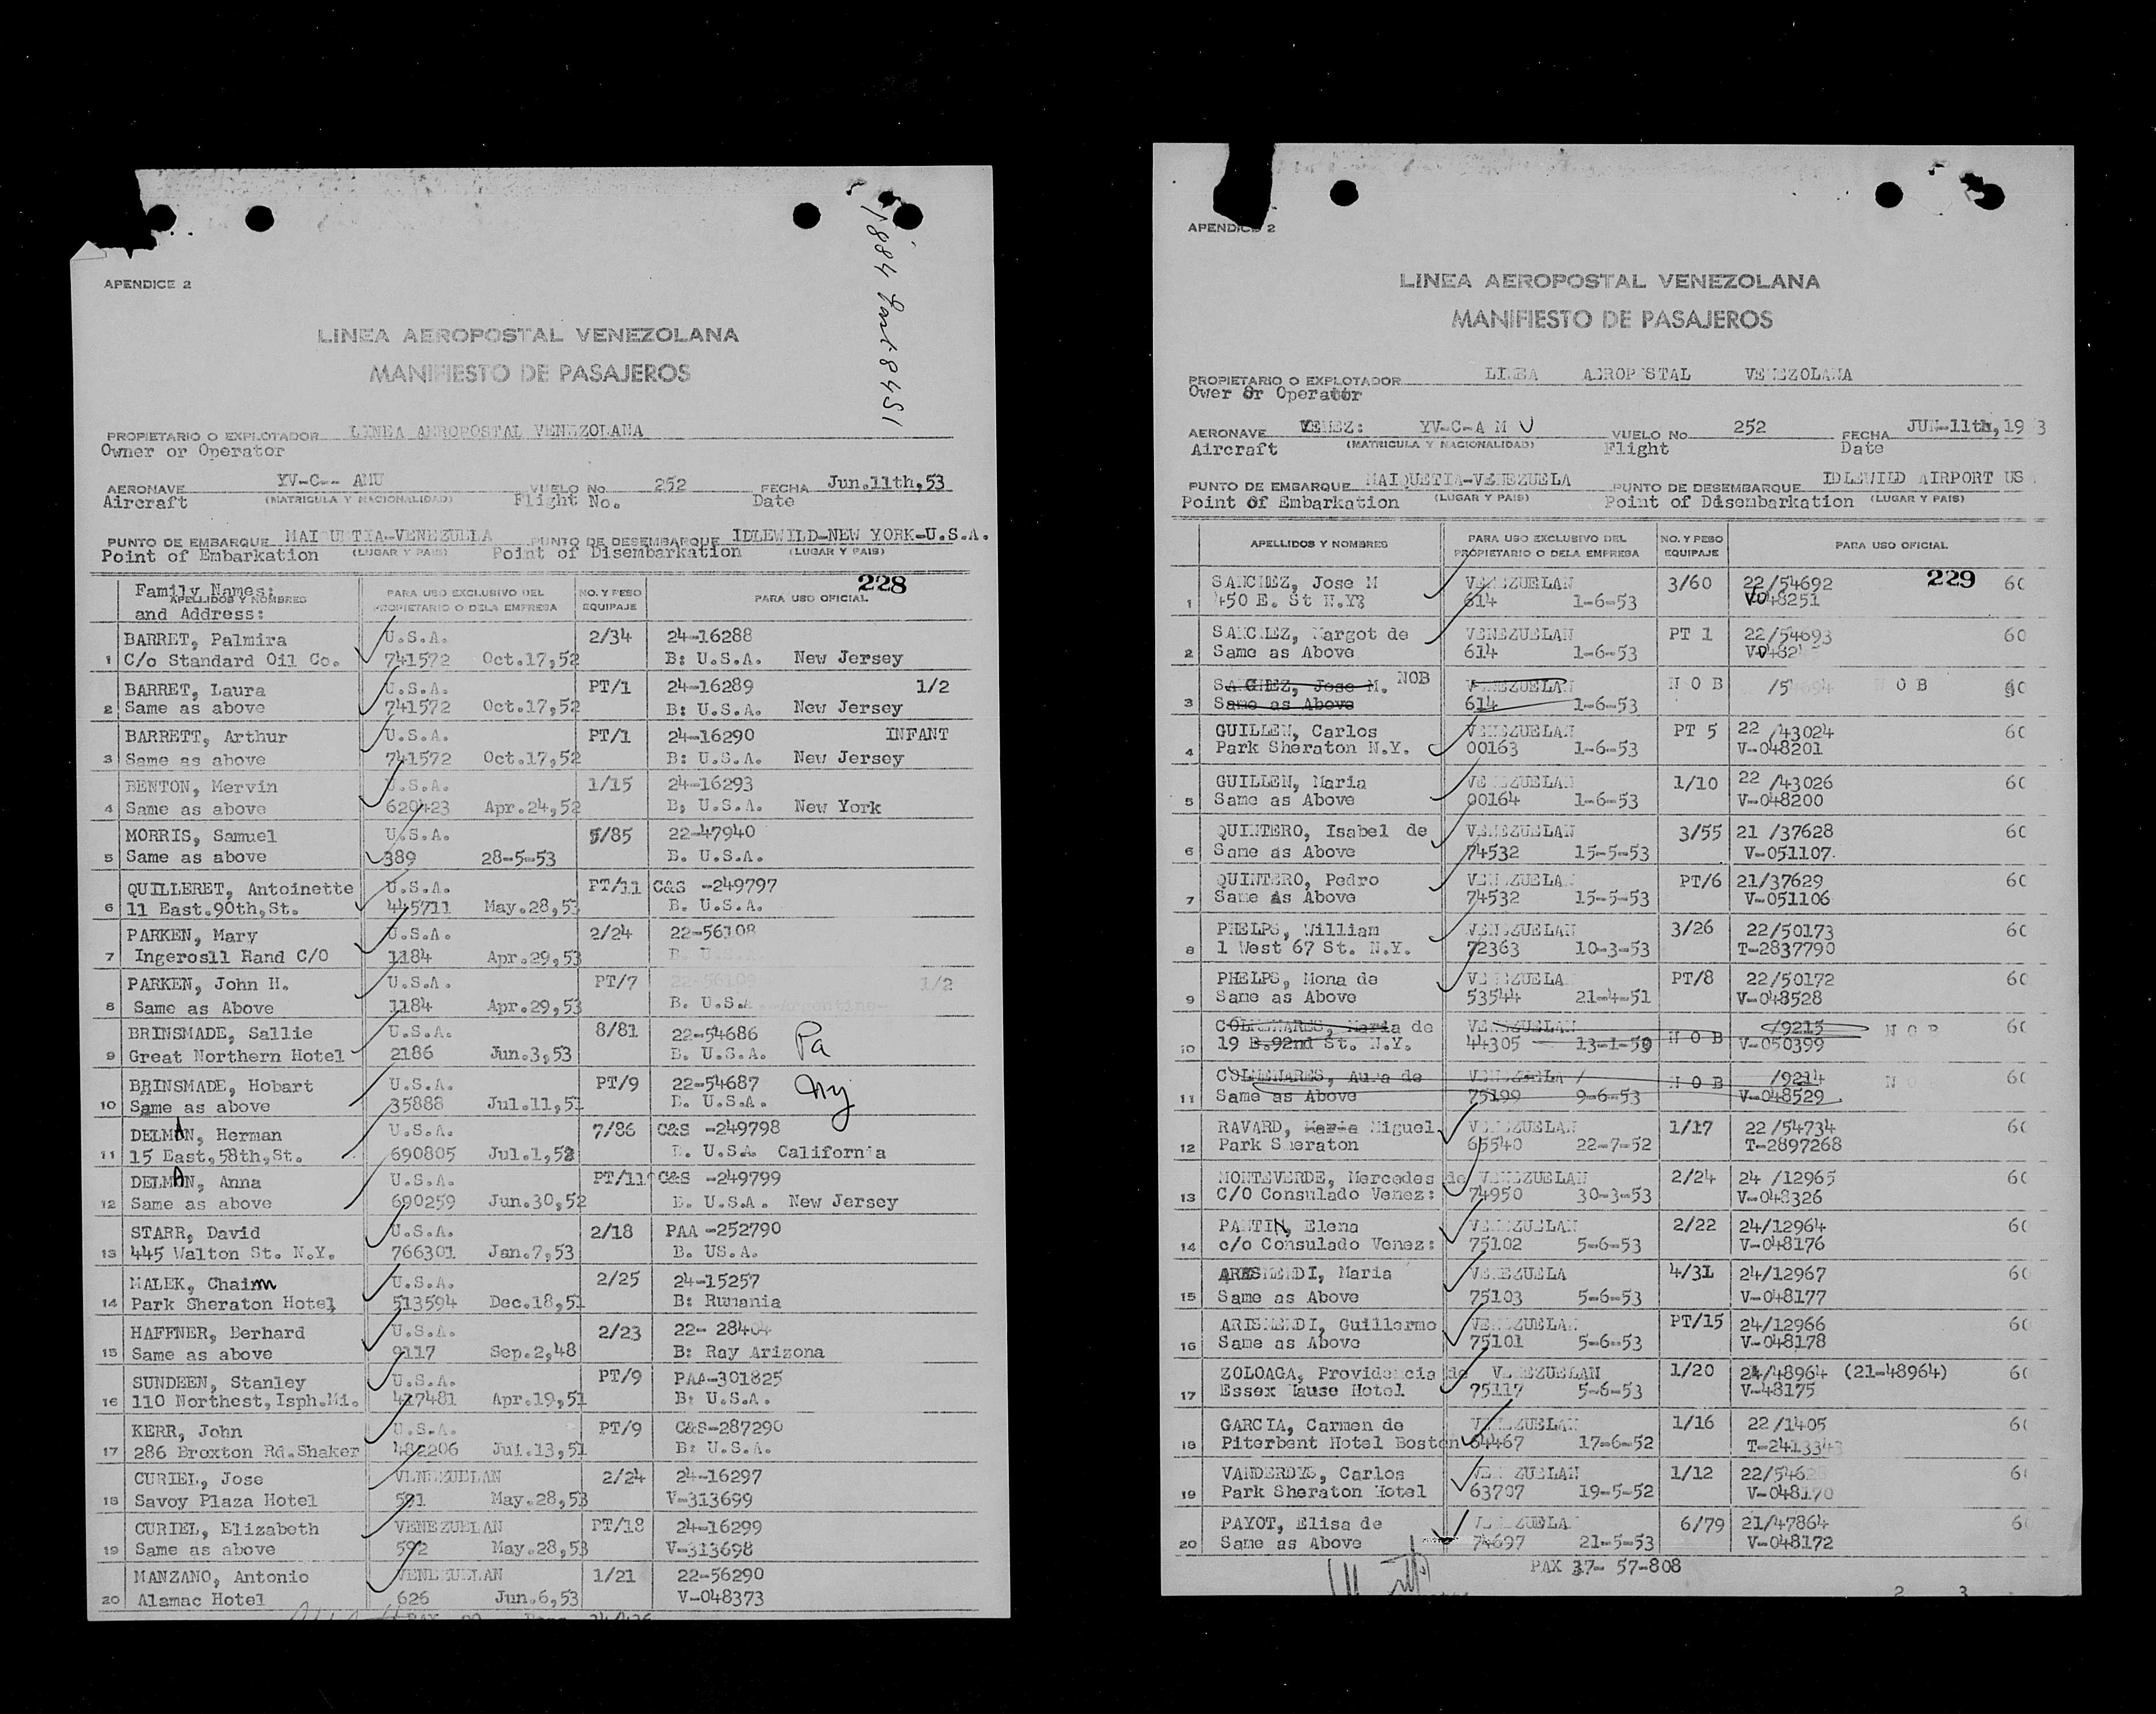 APENDICE 2
LINEA AEROPOSTAL VENEZOLANA
MANIFIESTO DE PASAJEROS
PROPIETARIO O EXPLOTADOR LINEA AEROPOSTAL VENEZOLANA
Owner or Operator
AERONAVE YV-C-- AMU VUELO No. 252 FECHA Jun.11th,53
Aircraft (MATRICULA Y NACIONALIDAD) Flight No. Date
PUNTO DE EMBARQUE MAIQUETIA-VENEZUELA PUNTO DE DESEMBARQUE IDLEWILD-NEW YORK-U.S.A.
Point of Embarkation (LUGAR Y PAIS) Point of Disembarkation (LUGAR Y PAIS)
228
Family Names:
APELLIDOS Y NOMBRES PARA USO EXCLUSIVO DEL PROPIETARIO O DE LA EMPRESA NO. Y PESO EQUIPAJE PARA USO OFICIAL
and Address:
BARRET, Palmira U.S.A. 2/34 24-16288
1 C/o Standard Oil Co. 741572 Oct.17,52 B: U.S.A. New Jersey
BARRET, Laura U.S.A. PT/1 24-16289 1/2
2 Same as above 741572 Oct.17,52 B: U.S.A. New Jersey
BARRETT, Arthur U.S.A. PT/1 24-16290 INFANT
3 Same as above 741572 Oct.17,52 B: U.S.A. New Jersey
BENTON, Mervin U.S.A. 1/15 24-16293
4 Same as above 620423 Apr.24,52 B; U.S.A. New York
MORRIS, Samuel U.S.A. 5/85 22-47940
5 Same as above 389 28-5-53 B. U.S.A.
QUILLERET, Antoinette U.S.A. PT/11 C&S -249797
6 11 East.90th,St. 445711 May.28,53 B. U.S.A.
PARKEN, Mary U.S.A. 2/24 22-56108
7 Ingerosll Rand C/O 1184 Apr.29,53 B. U.S.A.
PARKEN, John H. U.S.A. PT/7 22-56109 1/2
8 Same as Above 1184 Apr.29,53 B. U.S.A.
BRINSMADE, Sallie U.S.A. 8/81 22-54686 Pa
9 Great Northern Hotel 2186 Jun.3,53 B. U.S.A.
BRINSMADE, Hobart U.S.A. PT/9 22-54687 NY
10 Same as above 35888 Jul.11,51 B. U.S.A.
DELMAN, Herman U.S.A. 7/86 C&S -249798
11 15 East,58th,St. 690805 Jul.1,52 B. U.S.A. California
DELMAN, Anna U.S.A. PT/11 C&S -249799
12 Same as above 690259 Jun.30,52 B. U.S.A. New Jersey
STARR, David U.S.A. 2/18 PAA -252790
13 445 Walton St. N.Y. 766301 Jan.7,53 B. US.A.
MALEK, Chaim U.S.A. 2/25 24-15257
14 Park Sheraton Hotel 513594 Dec.18,51 B: Rumania
HAFFNER, Berhard U.S.A. 2/23 22- 28404
15 Same as above 9117 Sep.2,48 B: Ray Arizona
SUNDEEN, Stanley U.S.A. PT/9 PAA-301825
16 110 Northest,Isph.Mi. 417481 Apr.19,51 B: U.S.A.
KERR, John U.S.A. PT/9 C&S-287290
17 286 Broxton Rd.Shaker 482206 Jul.13,51 B: U.S.A.
CURIEL, Jose VENEZUELAN 2/24 24-16297
18 Savoy Plaza Hotel 591 May.28,53 V-313699
CURIEL, Elizabeth VENEZUELAN PT/18 24-16299
19 Same as above 592 May.28,53 V-313698
MANZANO, Antonio VENEZUELAN 1/21 22-56290
20 Alamac Hotel 626 Jun.6,53 V-048373
APENDICE 2
LINEA AEROPOSTAL VENEZOLANA
MANIFIESTO DE PASAJEROS
PROPIETARIO O EXPLOTADOR LINEA AEROPOSTAL VENEZOLANA
Ower Or Operator
AERONAVE VENEZ: YV-C-A M U VUELO No 252 FECHA JUN-11th, 19 3
Aircraft (MATRICULA Y NACIONALIDAD) Flight Date
PUNTO DE EMBARQUE MAIQUETIA-VENEZUELA PUNTO DE DESEMBARQUE IDLEWILD AIRPORT US
Point Of Embarkation (LUGAR Y PAIS) Point of Disembarkation (LUGAR Y PAIS)
APELLIDOS Y NOMBRES PARA USO EXCLUSIVO DEL PROPIETARIO O DE LA EMPRESA NO. Y PESO EQUIPAJE PARA USO OFICIAL
229
SANCHEZ, Jose M VENEZUELAN 3/60 22/54692 60
1 450 E. St N.Y. 614 1-6-53 V048251
SANCHEZ, Margot de VENEZUELAN PT 1 22/54693 60
2 Same as Above 614 1-6-53
SANCHEZ, Jose M. NOB VENEZUELAN N O B N O B 60
3 Same as Above 614 1-6-53
GUILLEN, Carlos VENEZUELAN PT 5 22 /43024 60
4 Park Sheraton N.Y. 00163 1-6-53 V-048201
GUILLEN, Maria VENEZUELAN 1/10 22 /43026 60
5 Same as Above 00164 1-6-53 V-048200
QUINTERO, Isabel de VENEZUELAN 3/55 21 /37628 60
6 Same as Above 74532 15-5-53 V-051107
QUINTERO, Pedro VENEZUELAN PT/6 21/37629 60
7 Same As Above 74532 15-5-53 V-051106
PHELPS, William VENEZUELAN 3/26 22/50173 60
8 1 West 67 St. N.Y. 72363 10-3-53 T-2837790
PHELPS, Mona de VENEZUELA PT/8 22/50172 60
9 Same as Above 53544 21-4-51 V-048528
COLMENARES, Maria de VENEZUELAN N O B /9215 N O B 60
10 19 E.92nd St. N.Y. 44305 13-1-50 V-050399
COLMENARES, Aura de VENEZUELA N O B /9214 60
11 Same as Above 75199 9-6-53 V-048529
RAVARD, Maria Miguel VENEZUELAN 1/17 22/54734 60
12 Park Sheraton 65540 22-7-52 T-2897268
MONTEVERDE, Mercedes de VENEZUELAN 2/24 24 /12965 60
13 C/O Consulado Venez: 74950 30-3-53 V-048326
PANTIN, Elena VENEZUELAN 2/22 24/12964 60
14 c/o Consulado Venez: 75102 5-6-53 V-048176
ARISMENDI, Maria VENEZUELA 4/31 24/12967 60
15 Same as Above 75103 5-6-53 V-048177
ARISMENDI, Guillermo VENEZUELAN PT/15 24/12966 60
16 Same as Above 75101 5-6-53 V-048178
ZOLOAGA, Providencia de VENEZUELAN 1/20 24/48964 (21-48964) 60
17 Essex Hause Hotel 75117 5-6-53 V-48175
GARCIA, Carmen de VENEZUELAN 1/16 22/1405 60
18 Piterbent Hotel Boston 64467 17-6-52 T-2413343
VANDERDYS, Carlos VENEZUELAN 1/12 60
19 Park Sheraton Hotel 63707 19-5-52 V-048170
PAYOT, Elisa de VENEZUELA 6/79 21/47864 6
20 Same as Above 74697 21-5-53 V-048172
PAX 37- 57-808
2 3